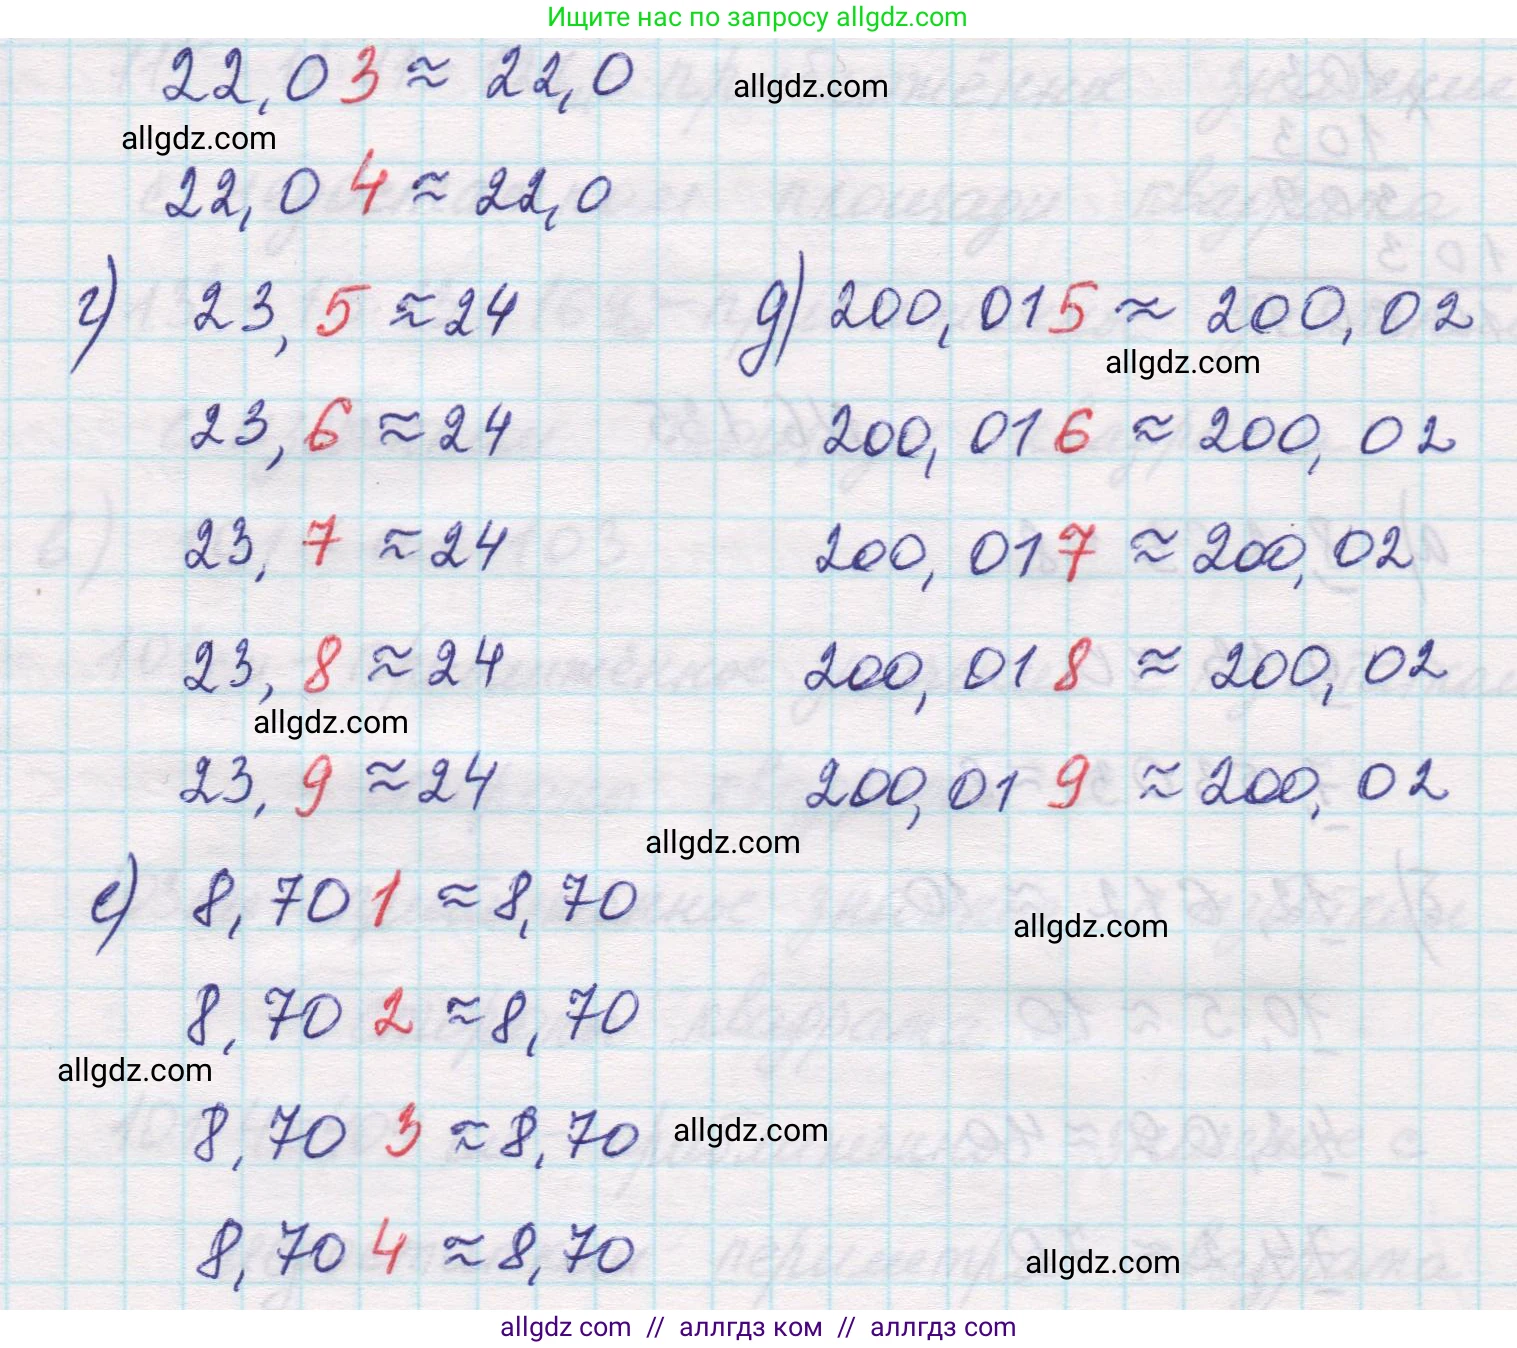 Ищите нас по запросу allgdz.com
22,03 ≈ 22,0
allgdz.com
allgdz.com
22,04 ≈ 22,0
г) 23,5 ≈ 24
д) 200,015 ≈ 200,02
allgdz.com
23,6 ≈ 24
200,016 ≈ 200,02
23,7 ≈ 24
200,017 ≈ 200,02
23,8 ≈ 24
200,018 ≈ 200,02
allgdz.com
23,9 ≈ 24
200,019 ≈ 200,02
allgdz.com
е) 8,701 ≈ 8,70
allgdz.com
8,702 ≈ 8,70
allgdz.com
8,703 ≈ 8,70
allgdz.com
8,704 ≈ 8,70
allgdz.com
allgdz com // аллгдз ком // аллгдз com